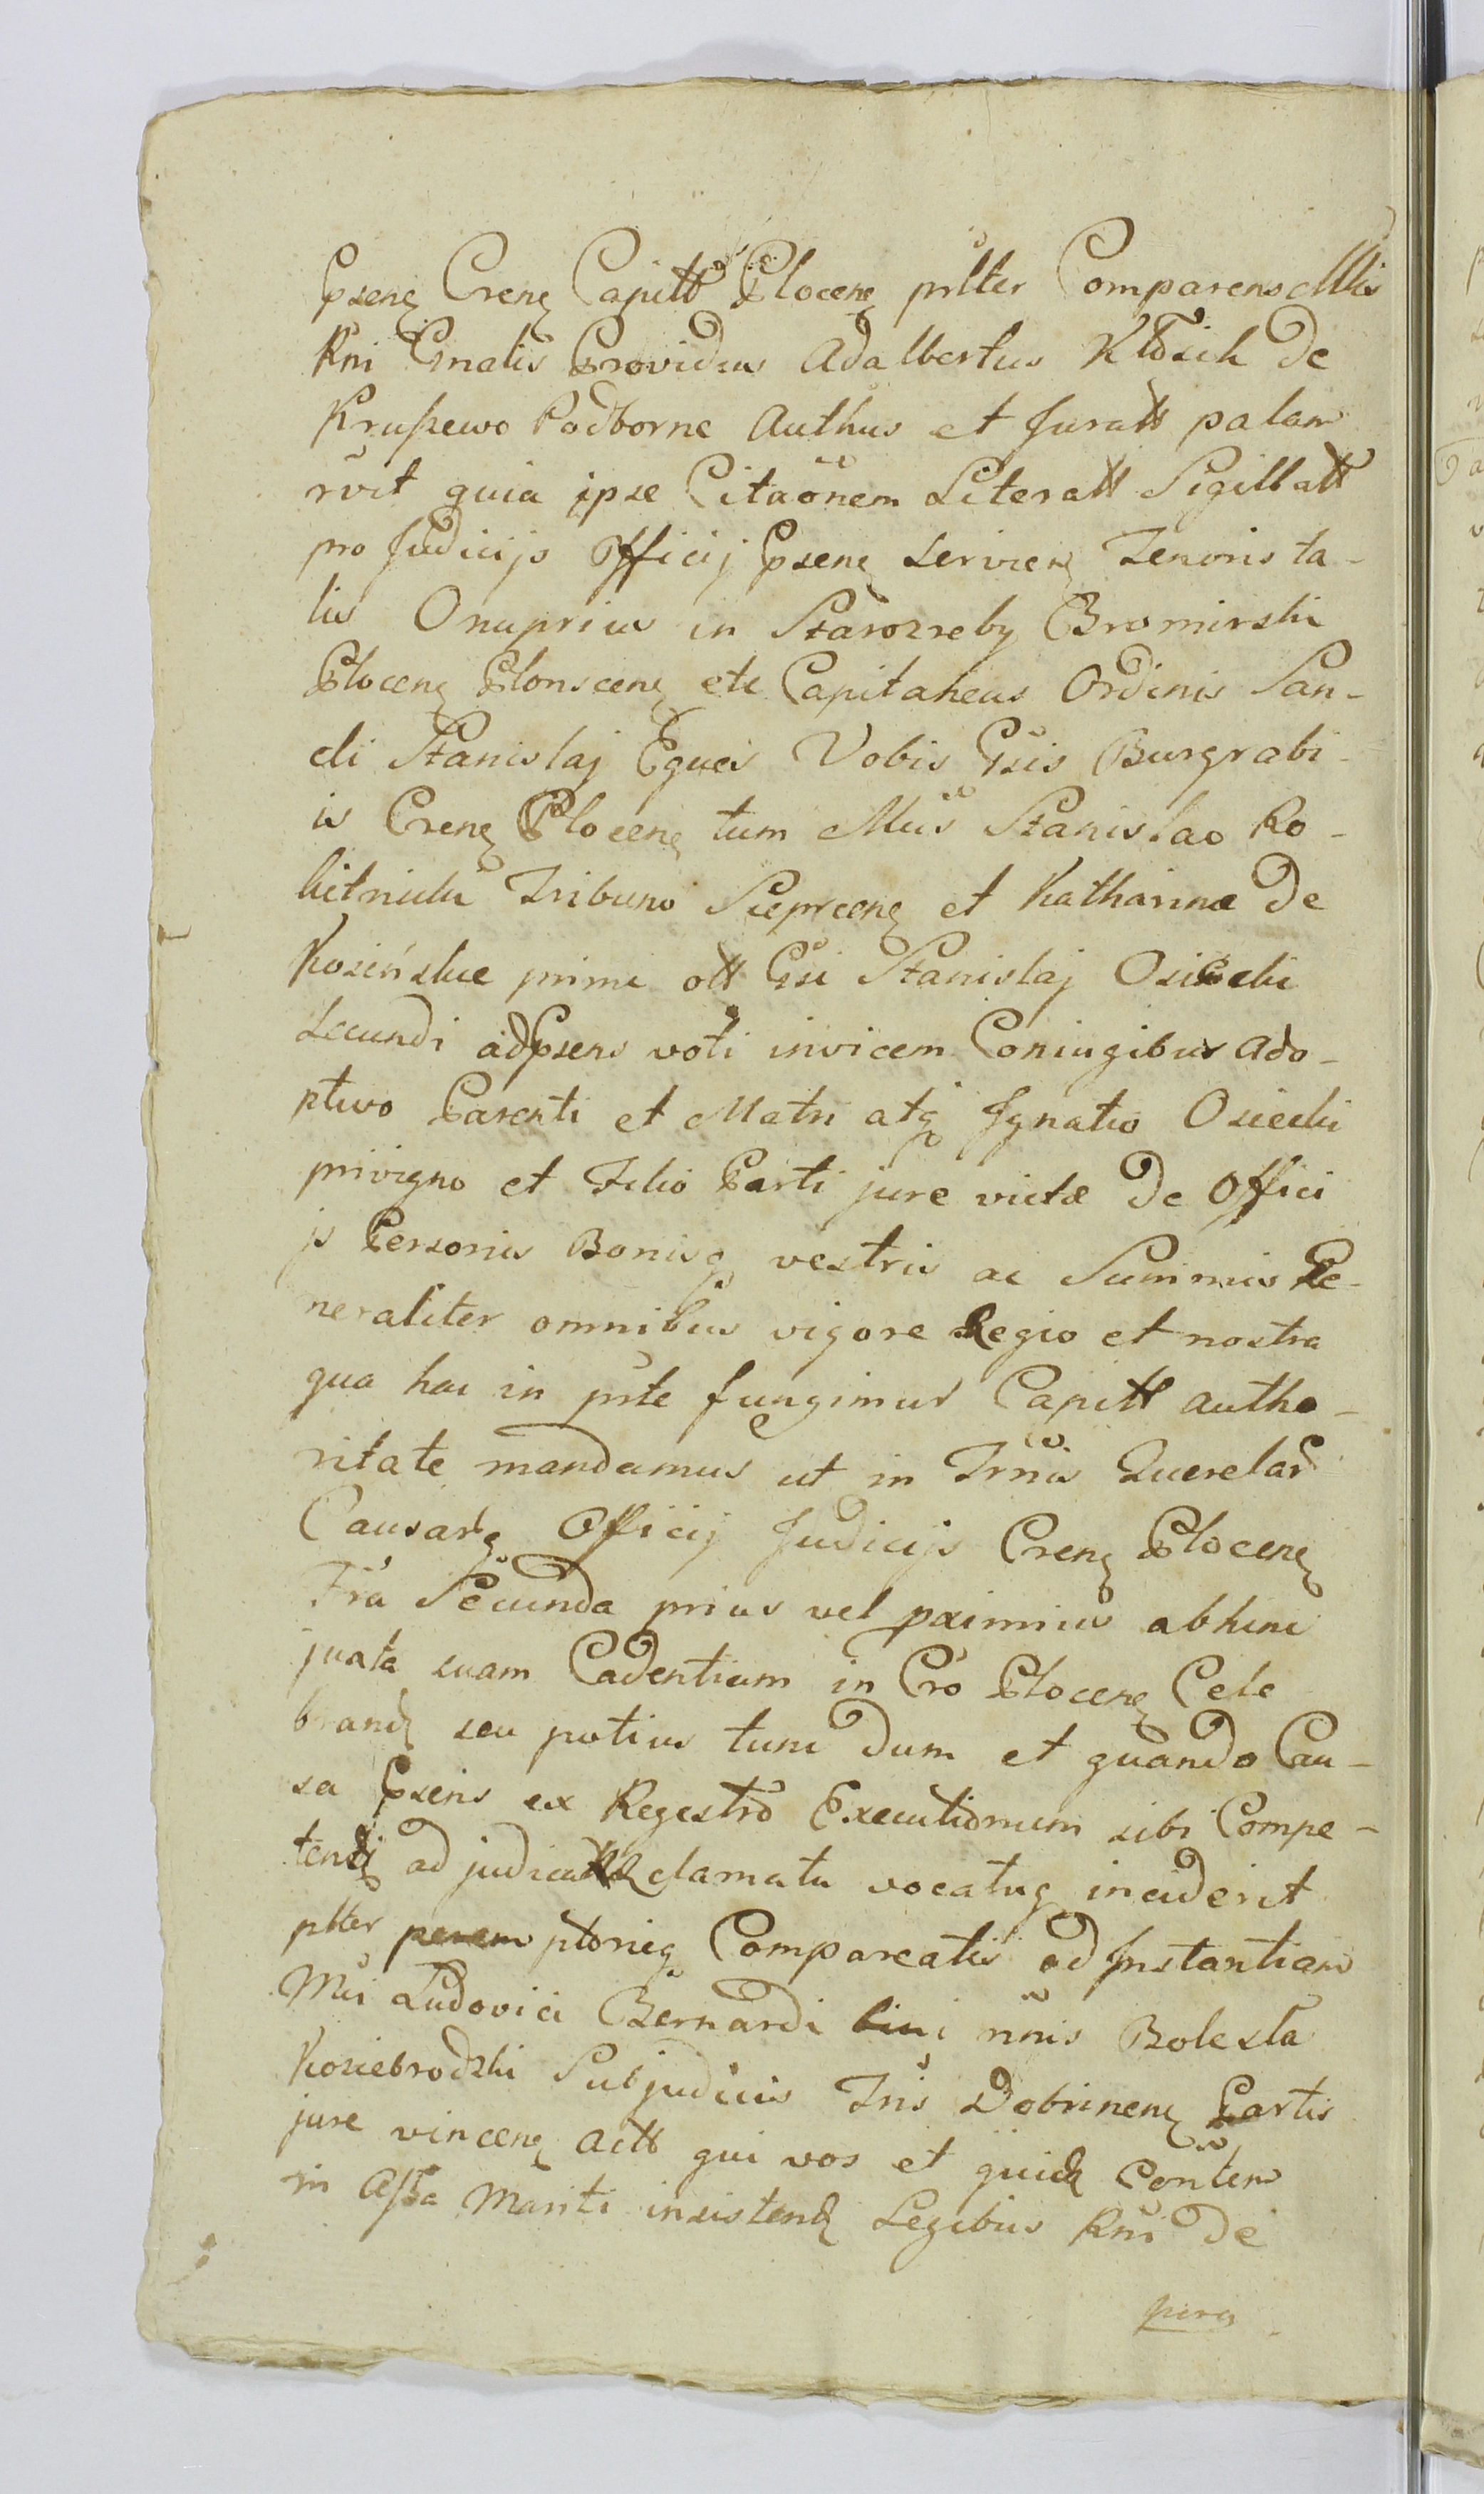 Psenę Crenę Capitt Plocenę prlter Comparens Mlis
Rni Gnalis Providus Adalbertus Kłosik de
Krußewo Podborne Authus et Juratt palam
rvit quia ipse Citaõnem Literatt Sigillatt
pro Judicijs Officij Psenę servienę Tenoris ta-
lis Onuprius in Starozreby Bromirski
Plocenę Plonscenę etc Capitaneus Ordinis San-
cti Stanislaj Eques Vobis Gsis Burgrabi-
is Crenę Plocenę tum Mlis Stanislao Ro-
kitnicki Tribuno Sieprcenę et Katharinæ de
Kosińskie primi ott Gsi Stanislaj Osiecki
secundi ad Psens voti invicem Coniugibus Ado-
ptivo Parenti et Matri atq Ignatio Osiecki
privigno et Filio Parti jure victæ de Offici
js Personis Bonisq vestris ac Summis Ge-
neraliter omnibus vigore Regio et nostra
qua hac in prte fungimur Capitt autho-
ritate mandamus ut in Trnis Querelar
Causarq Officij Judicijs Crenę Plocenę
Fra Secunda prius vel pximius abhinc
juxta suam Cadentiam in Cro Plocenę Cele
brand seu potius tunc dum et quando Cau-
sa Psens ex Regestro Executionum sibi Compe-
tend ad judicand clamatu vocatuq inciderit
plter peremptorieq Compareatis ad Instantiam
Mci Ludovici Bernardi nnis Bolesta
Koziebrodzki Subjudicis Tris Dobrinenę Partis
jure vincenę Actt qui vos et quidę Conten
in Assa Mariti insistend Legibus Rni de